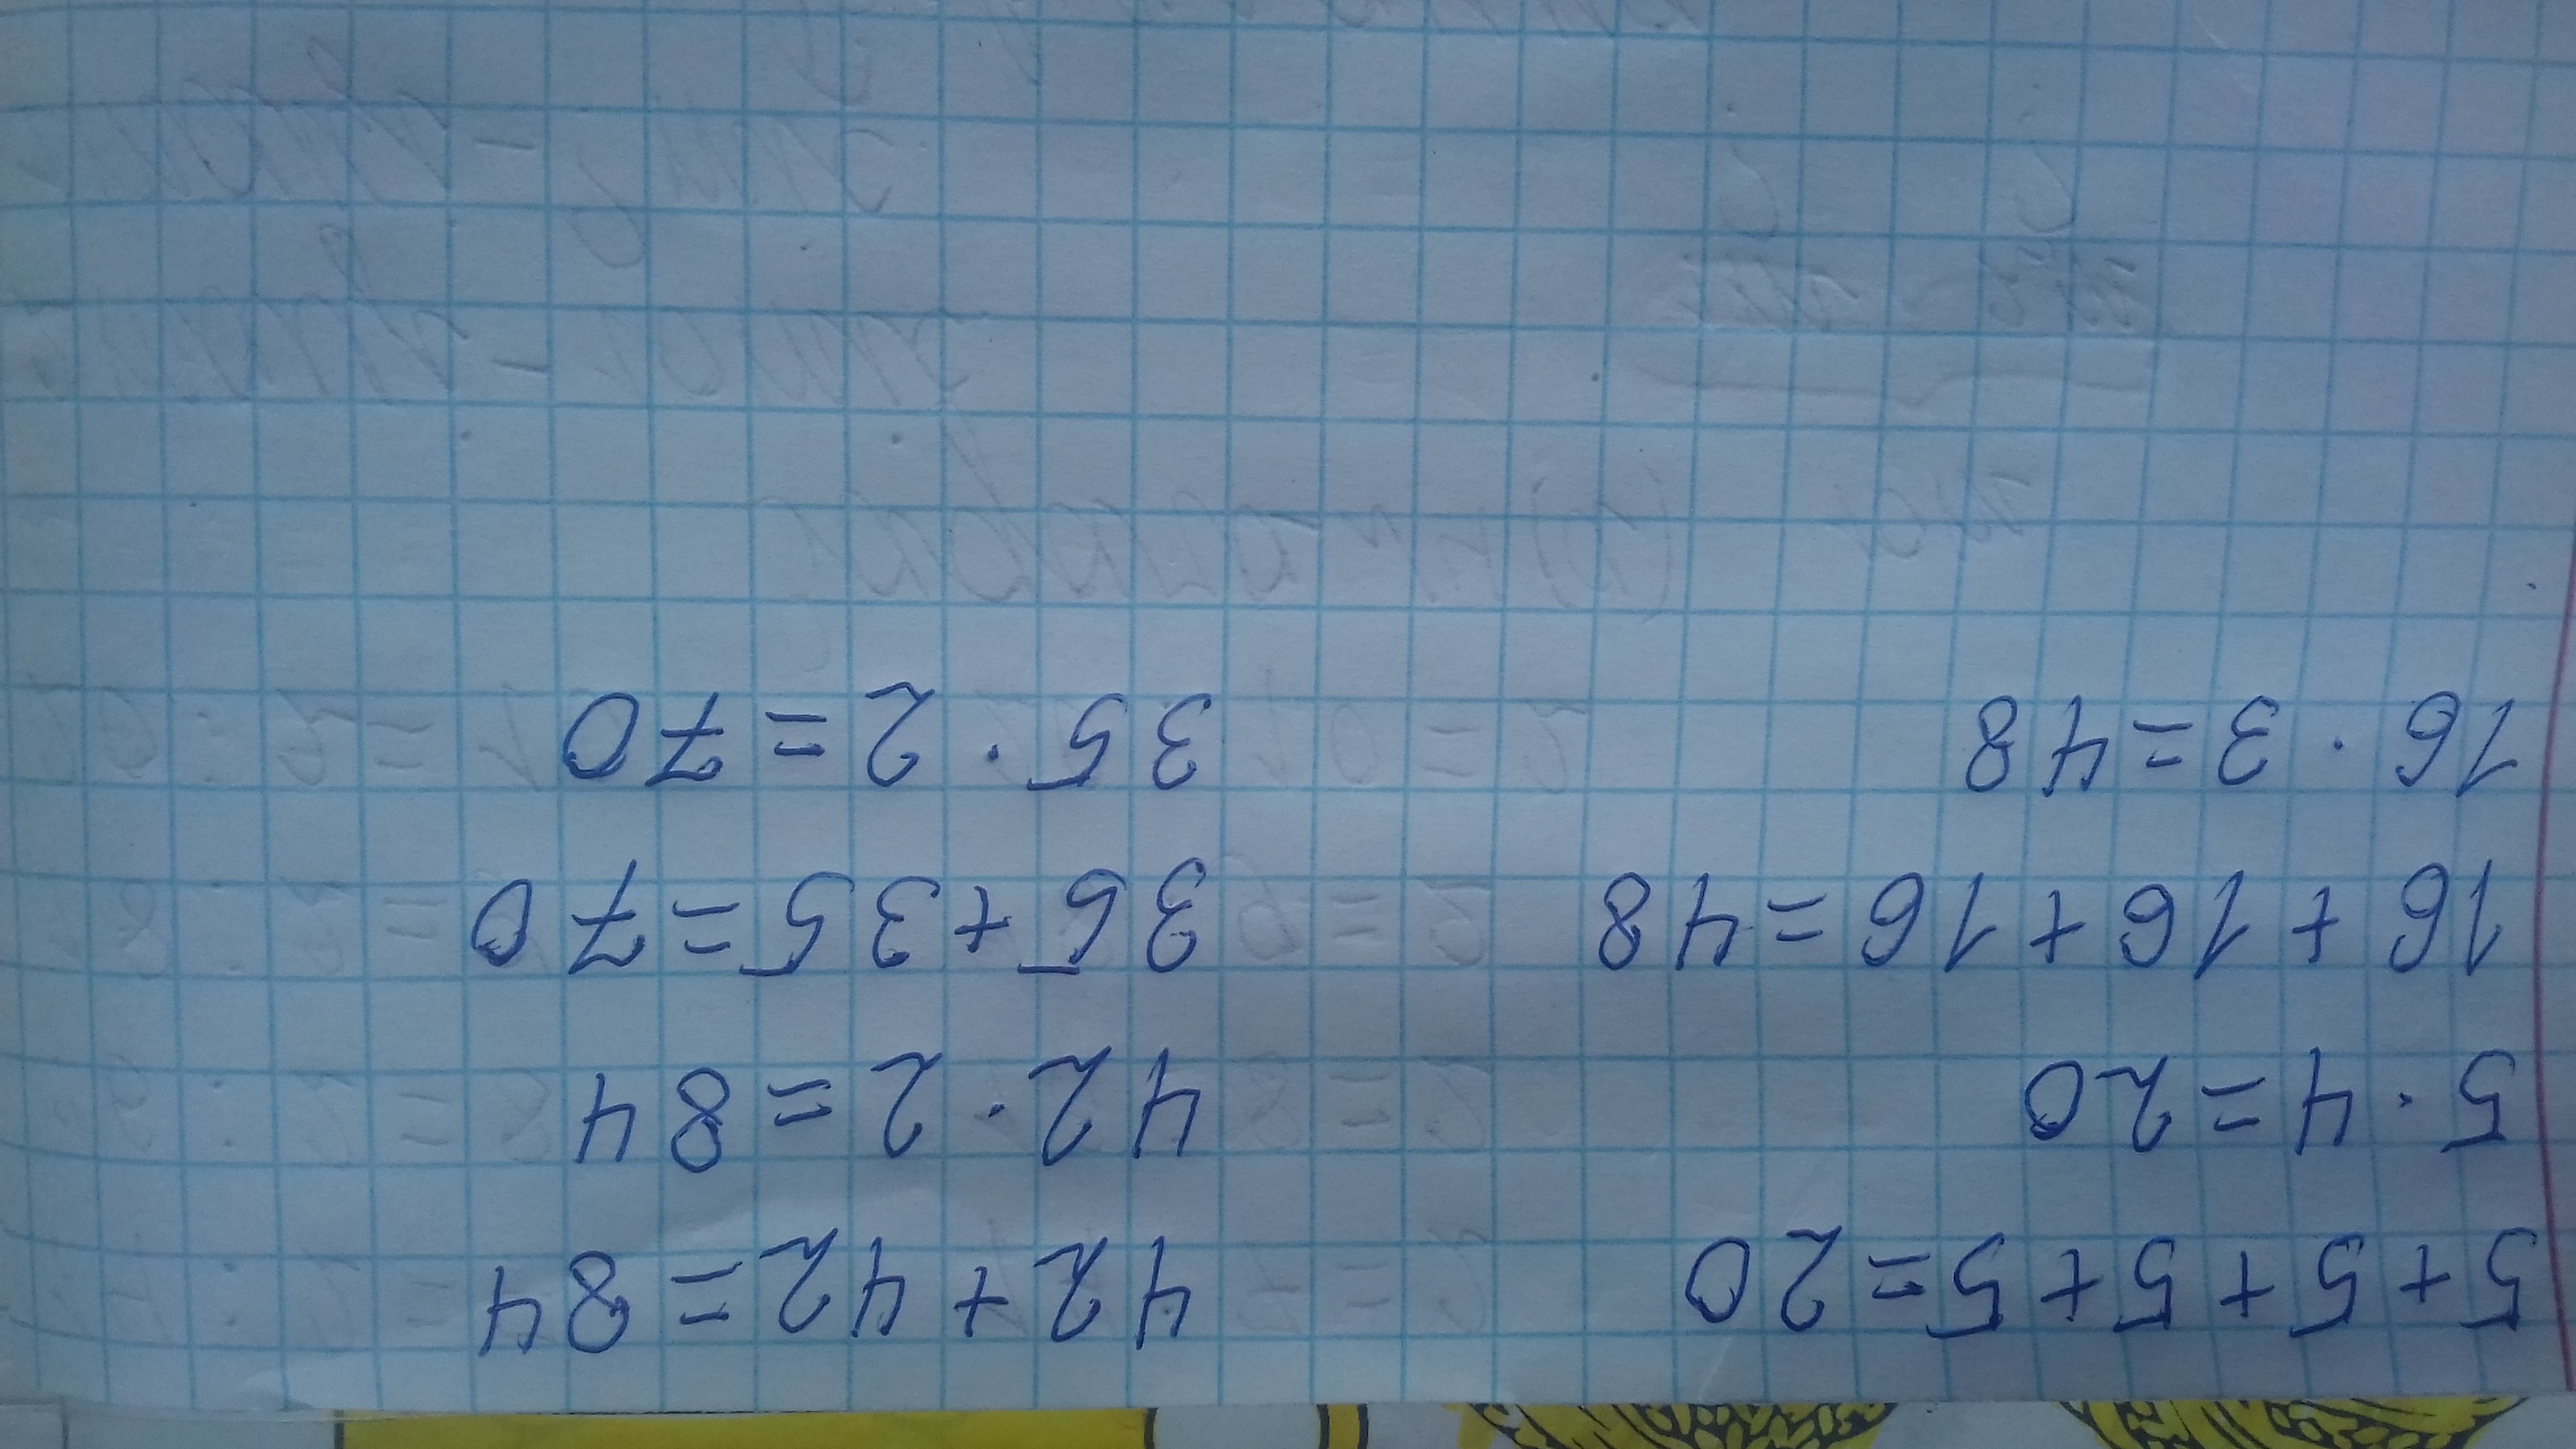 5+5+5+5=20 42+42=84
5·4=20 42·2=84
16+16+16=48 35+35=70
16·3=48 35·2=70